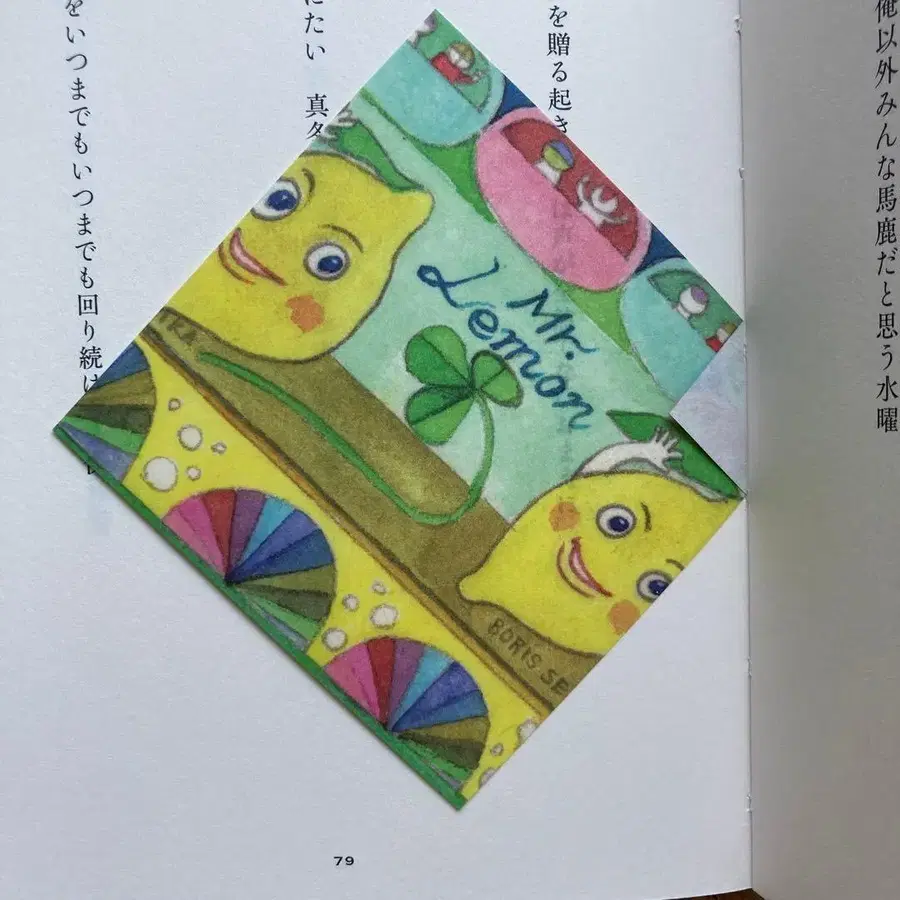 俺以外みんな馬鹿だと思う水曜
を贈る起き
にたい 真
をいつまでもいつまでも回り続け
Mr.
Lemon
TRA
BORIS SE
79